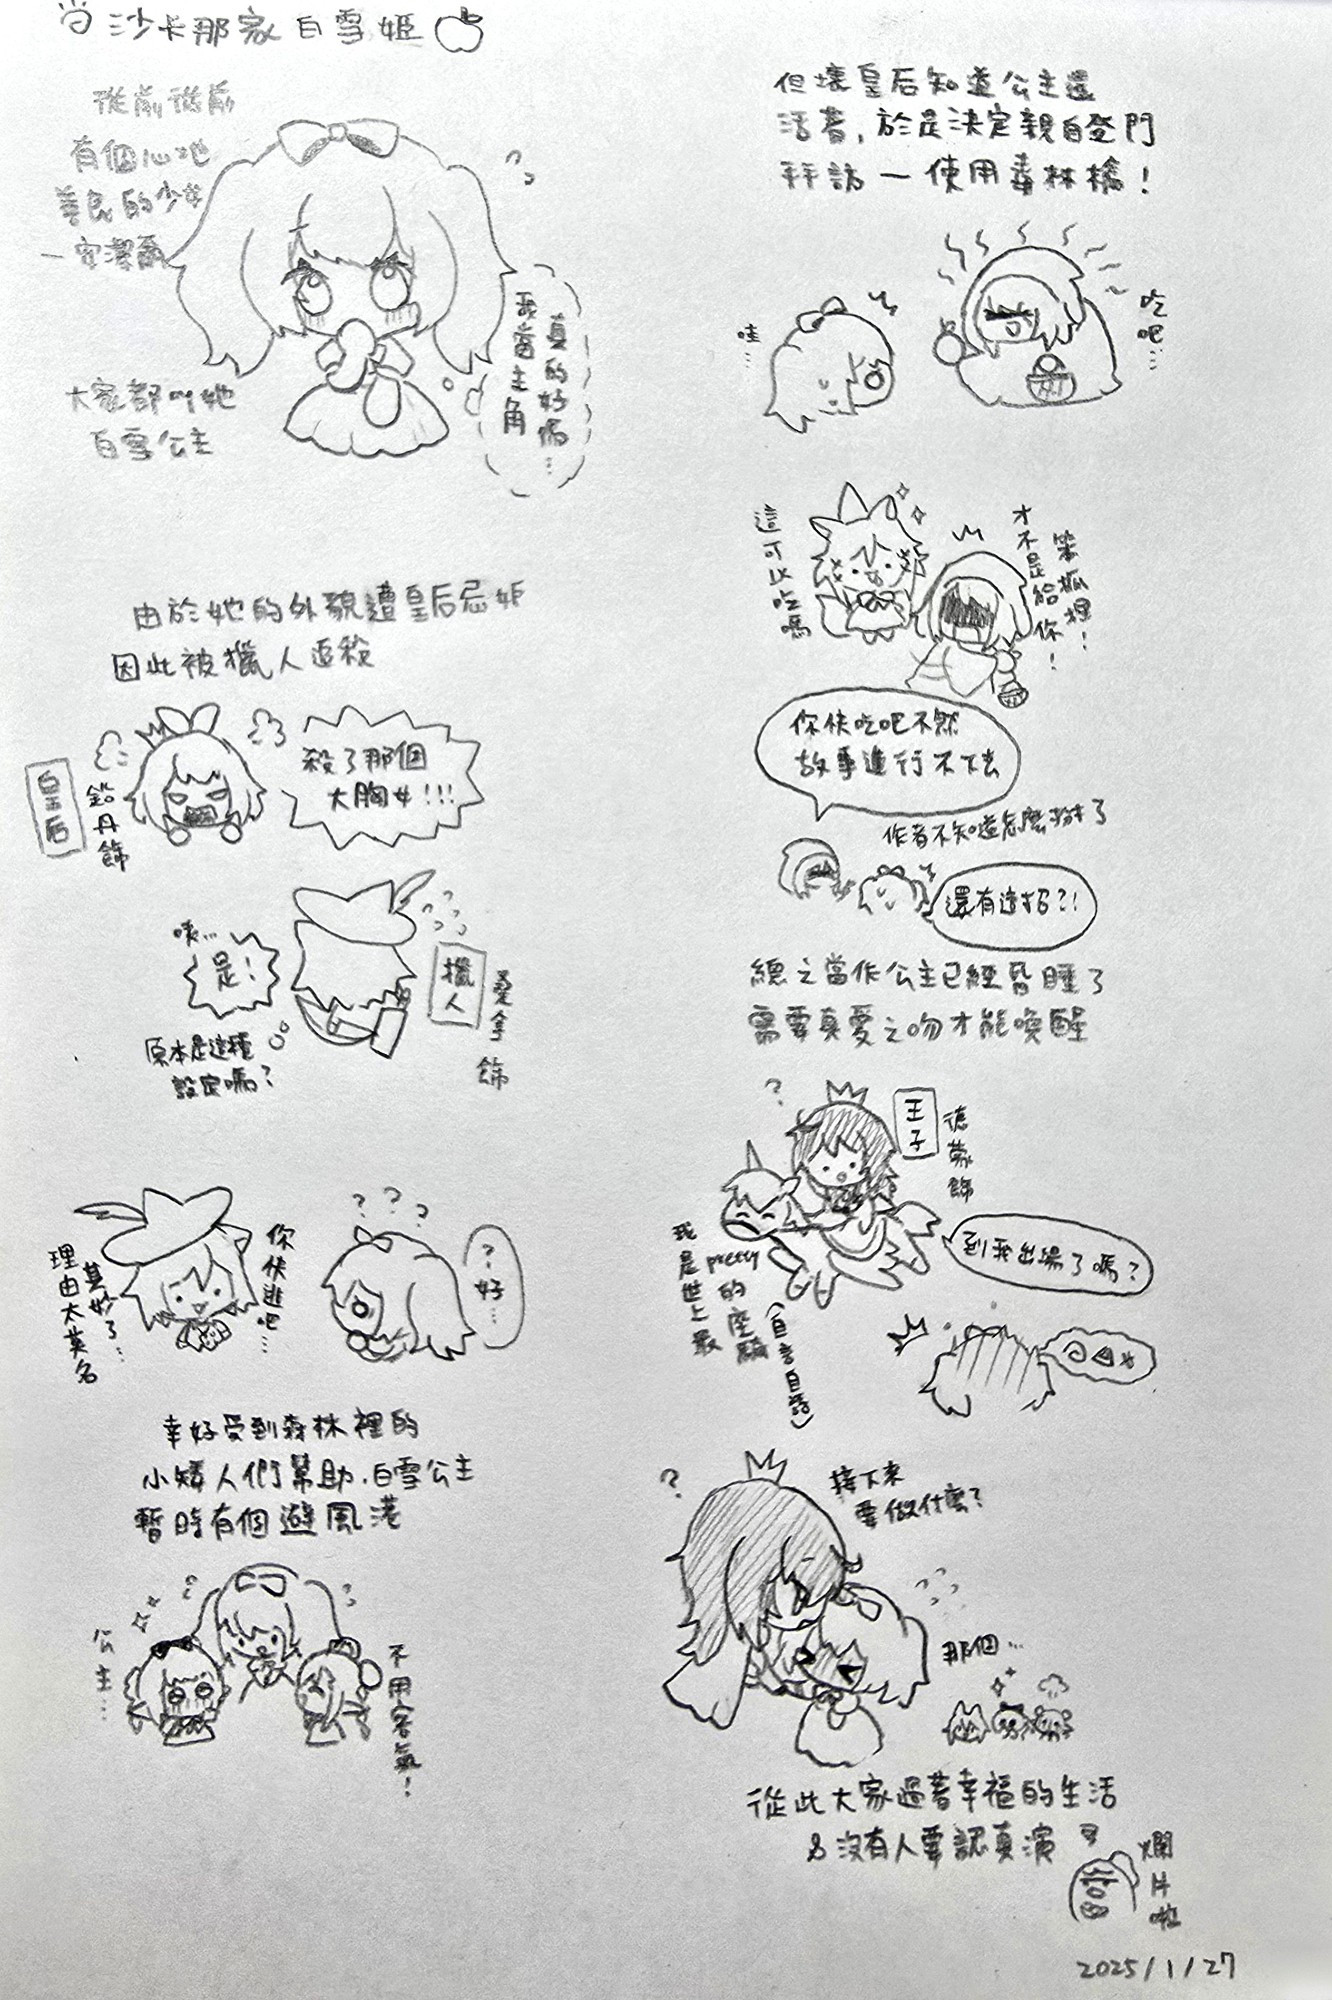 沙卡那家白雪姬
從前從前
有個心地
善良的少女
—安潔爾
大家都叫她
白雪公主
真的好嗎…
我當主角
由於她的外貌遭皇后忌妒
因此被獵人追殺
皇后
鉛丹飾
殺了那個
大胸女!!!
咦…
是!
獵人
桑拿飾
原本是這種
設定嗎?
你快逃吧…
莫妙了…
理由太莫名
?好…
幸好受到森林裡的
小矮人們幫助,白雪公主
暫時有個避風港
公主…
不用客氣!
但壞皇后知道公主還
活著,於是決定親自登門
拜訪—使用毒林檎!
哇…
吃吧…
這可以吃嗎
笨狐狸!
才不是給你!
你快吃吧不然
故事進行不下去
作者不知道怎麼掰了
還有這招?!
總之當作公主已經昏睡了
需要真愛之吻才能喚醒
?
王子
德蒙飾
到我出場了嗎?
我是世上最
pretty的座騎
(自言自語)
?
接下來
要做什麼?
那個…
從此大家過著幸福的生活
&沒有人要認真演
爛片啦
2025/1/27